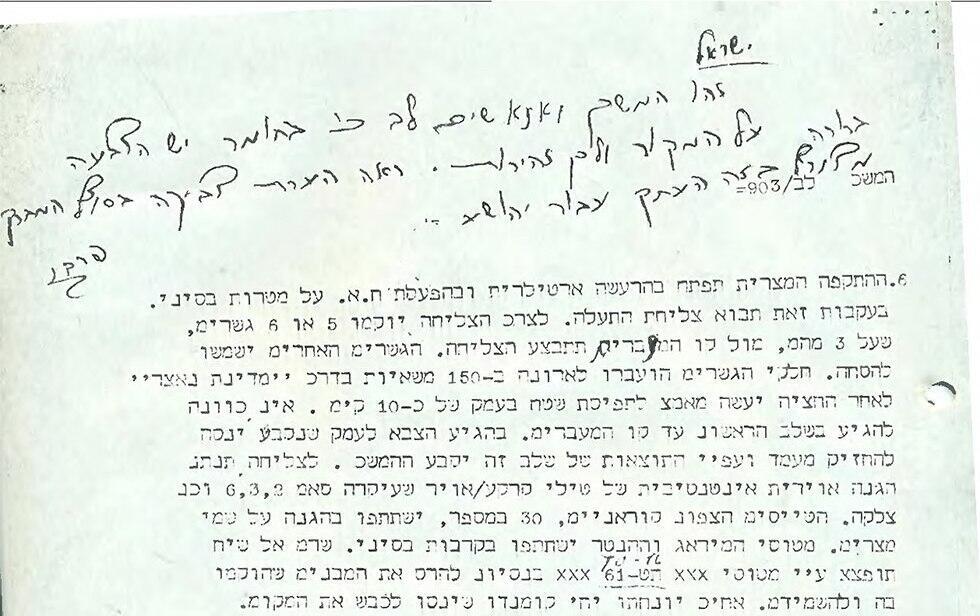 ישראל
זהו המשך ואנא שים לב כי בחומר יש הצבעה
ברורה על המקור ולכן זהירות. ראה הערת צביקה בסוף המברק
בזה העתק עבור יהושע
המשכ לב/903=
פרקו
6.ההתקפה המצרית תפתח בהרעשה ארטילרית ובהפעלת ח.א. על מטרות בסיני.
בעקבות זאת תבוא צליחת התעלה. לצרכ הצליחה יוקמו 5 או 6 גשרימ,
שעל 3 מהמ, מול קו המעברימ תתבצע הצליחה. הגשרימ האחרימ ישמשו
להסחה. חלקי הגשרימ הועברו לארונה ב-150 משאיות בדרכ יימדינת נאצריי
לאחר החציה יעשה מאמצ לתפיסת שטח בעמק של כ-10 קימ. אינ כוונה
להגיע בשלב הראשונ עד קו המעברימ. בהגיע הצבא לעמק שנקבע ינסה
להחזיק מעמד ועפיי התוצאות של שלב זה יקבע ההמשכ. לצליחה תנתנ
הגנה אוירית אינטנטיבית של טילי קרקע/אויר שעיקרה סאמ 6,3,2 וכנ
צלקה. הטייסימ הצפונ קוראניימ, 30 במספר, ישתתפו בהגנה על שמי
מצרימ. מטוסי המיראג וההנטר ישתתפו בקרבות בסיני. שרמ אל שיח
TU-16
תופצצ עיי מטוסי xxx תט-61 xxx בנסיונ להרס את המבנימ שהוקמו
בה ולהשמידמ. אחיכ יונחתו יחי קומנדו שינסו לכבש את המקומ.